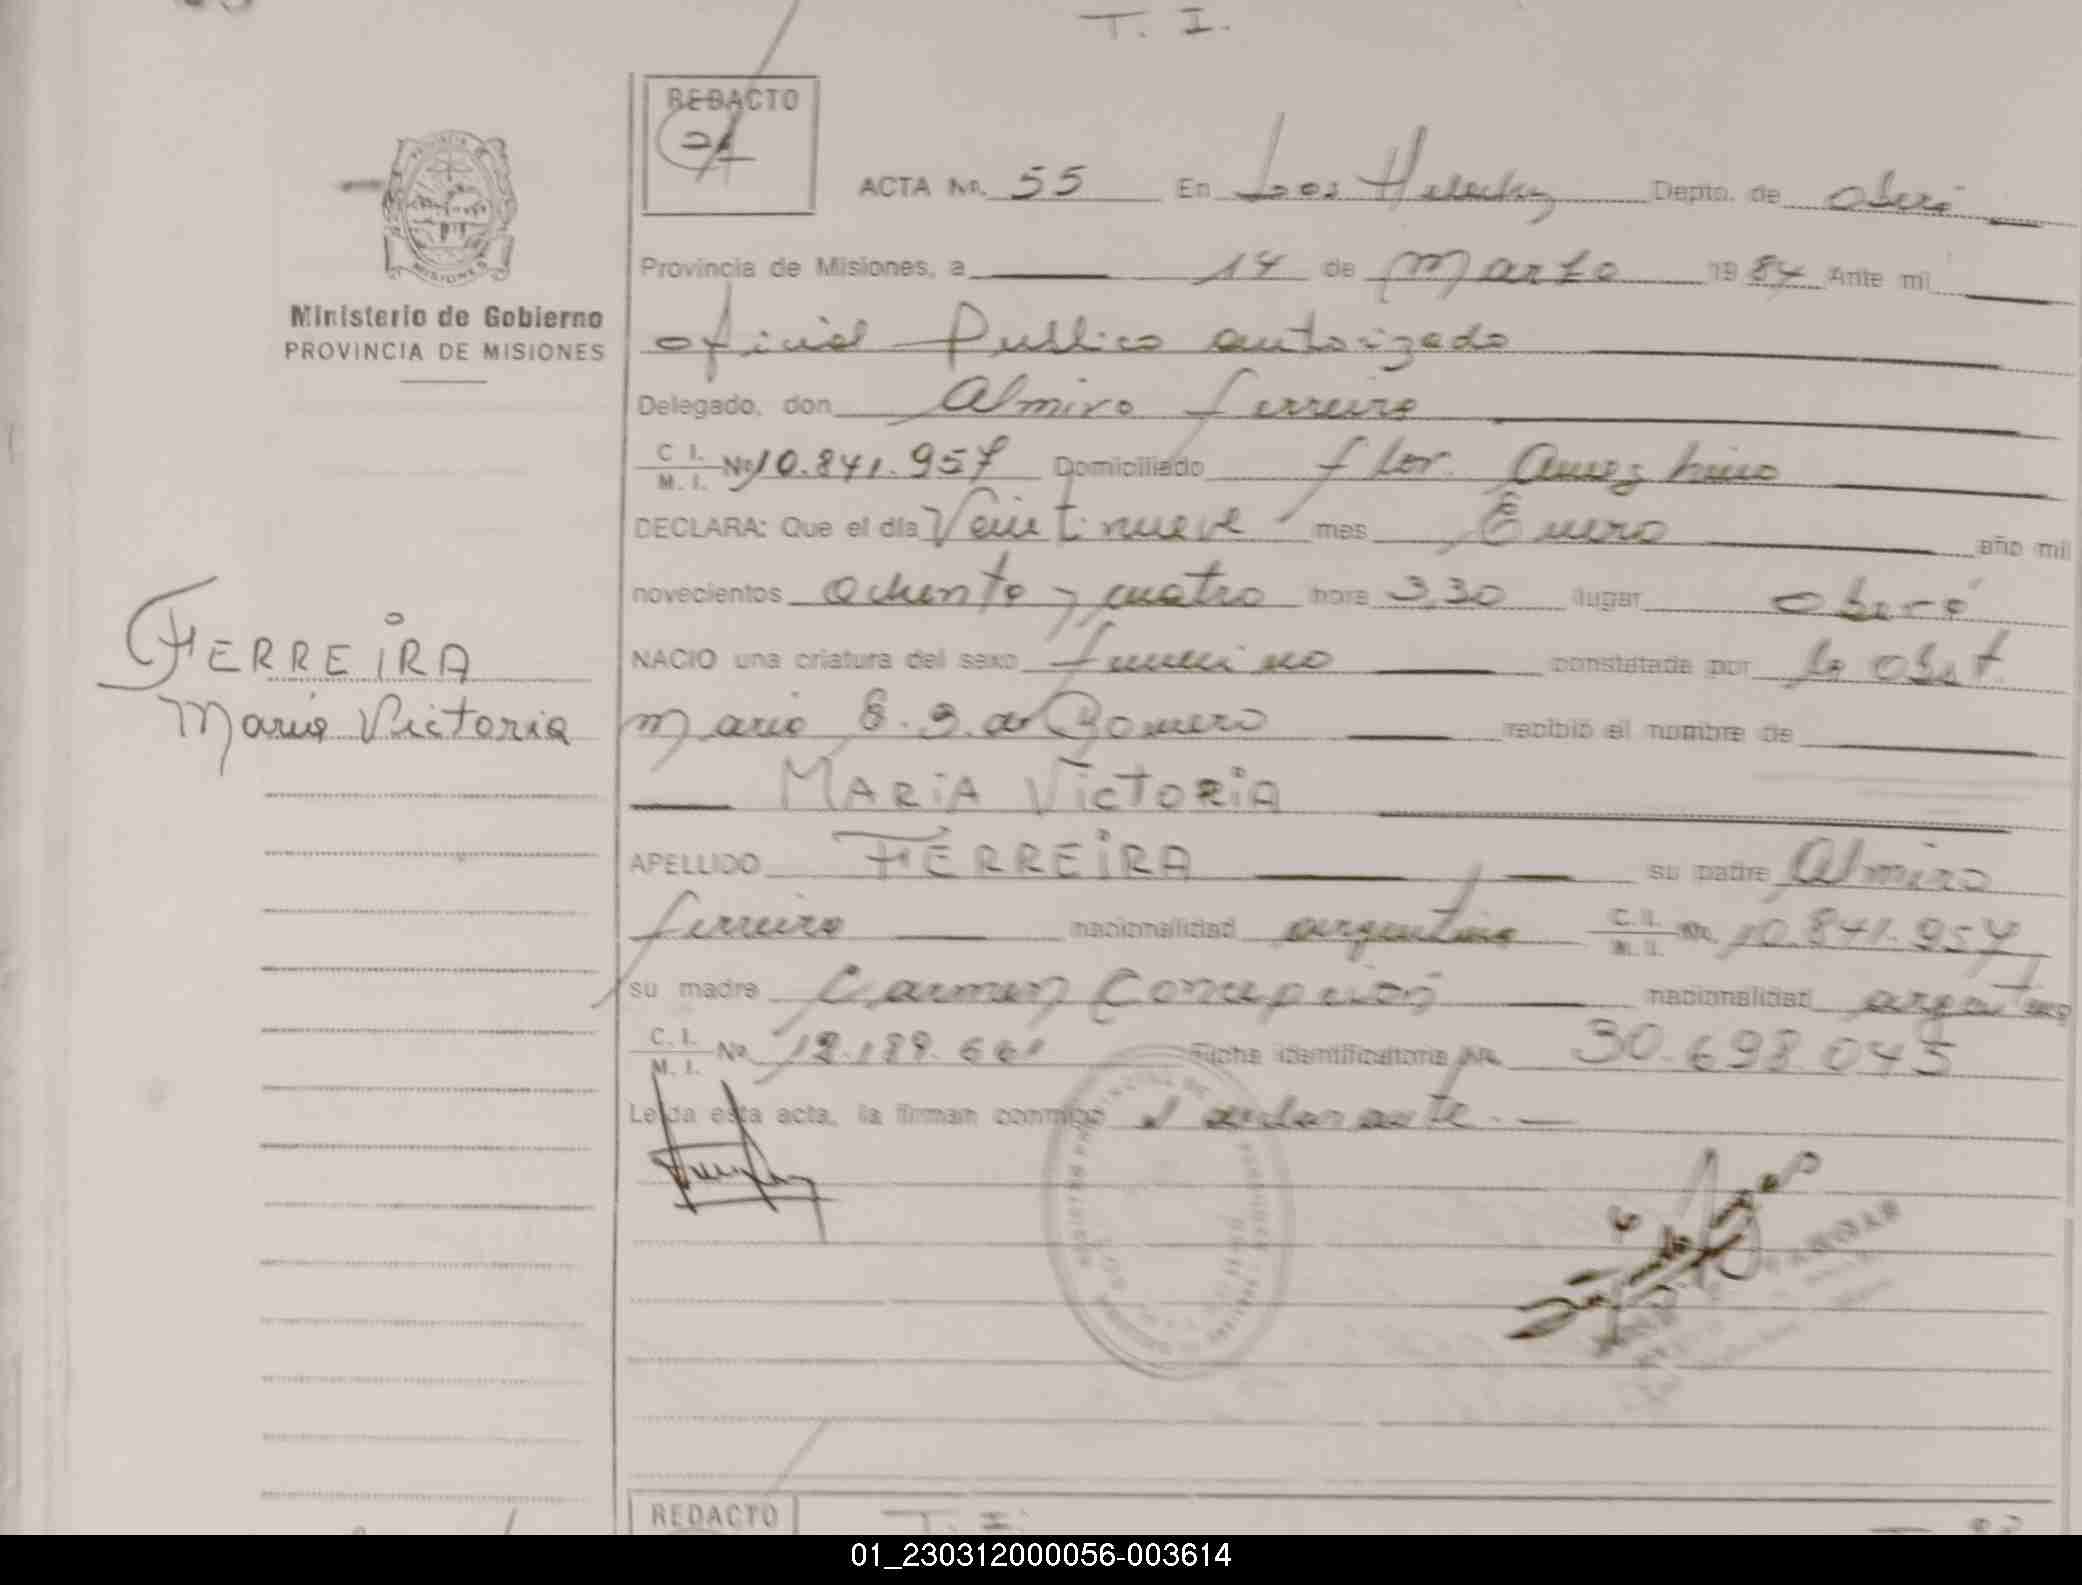 T. I.
REDACTO
ACTA Nº. 55 En Los Helechos Depto. de Oberá
Provincia de Misiones, a 14 de Marzo 1984 Ante mi
MISIONES
Ministerio de Gobierno
PROVINCIA DE MISIONES
oficial Publico autorizado
Delegado, don Almiro Ferreira
C. I.
M. I. Nº 10.841.957 Domiciliado flor. Ameghino
DECLARA: Que el día Veintinueve mes Enero año mil
novecientos ochenta y cuatro hora 3,30 lugar Oberá
NACIO una criatura del sexo femenino constatada por la obst.
FERREIRA
Maria Victoria
Maria E. G. de Romero recibió el nombre de
MARIA VICTORIA
APELLIDO FERREIRA su padre Almiro
Ferreira nacionalidad argentina C. I. M. I. Nº. 10.841.957
su madre Carmen Concepción nacionalidad argentina
C. I.
M. I. Nº 12.189.661 Ficha identificatoria Nº. 30.698.045
Leida esta acta, la firman conmigo el declarante.
REDACTO
T. I.
01_230312000056-003614